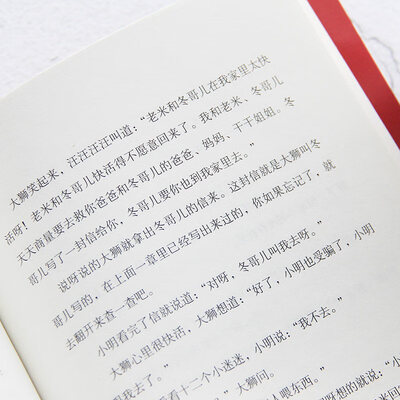 大狮笑起来，汪汪汪汪叫道：“老米和冬哥儿在我家里太快
活呀！老米和冬哥儿快活得不愿意回来了。我和老米、冬哥儿
天天商量要去救你爸爸和冬哥儿的爸爸、妈妈、干干姐姐。冬
哥儿写了一封信给你，冬哥儿要你也到我家里去。”
说呀说的大狮就拿出冬哥儿的信来。这封信就是大狮叫冬
哥儿写的，在上面一章里已经写出来过的，你如果忘记了，就
去翻开来查一查吧。
小明看完了信就说道：“对呀，冬哥儿叫我去呀。”
大狮心里很快活，大狮想道：“好了，小明也受骗了，小明
跟我去了。”
看十二个小迷迷，小明说：“我不去。”
”大狮问。
人喂东西。”
呀想的就说：“